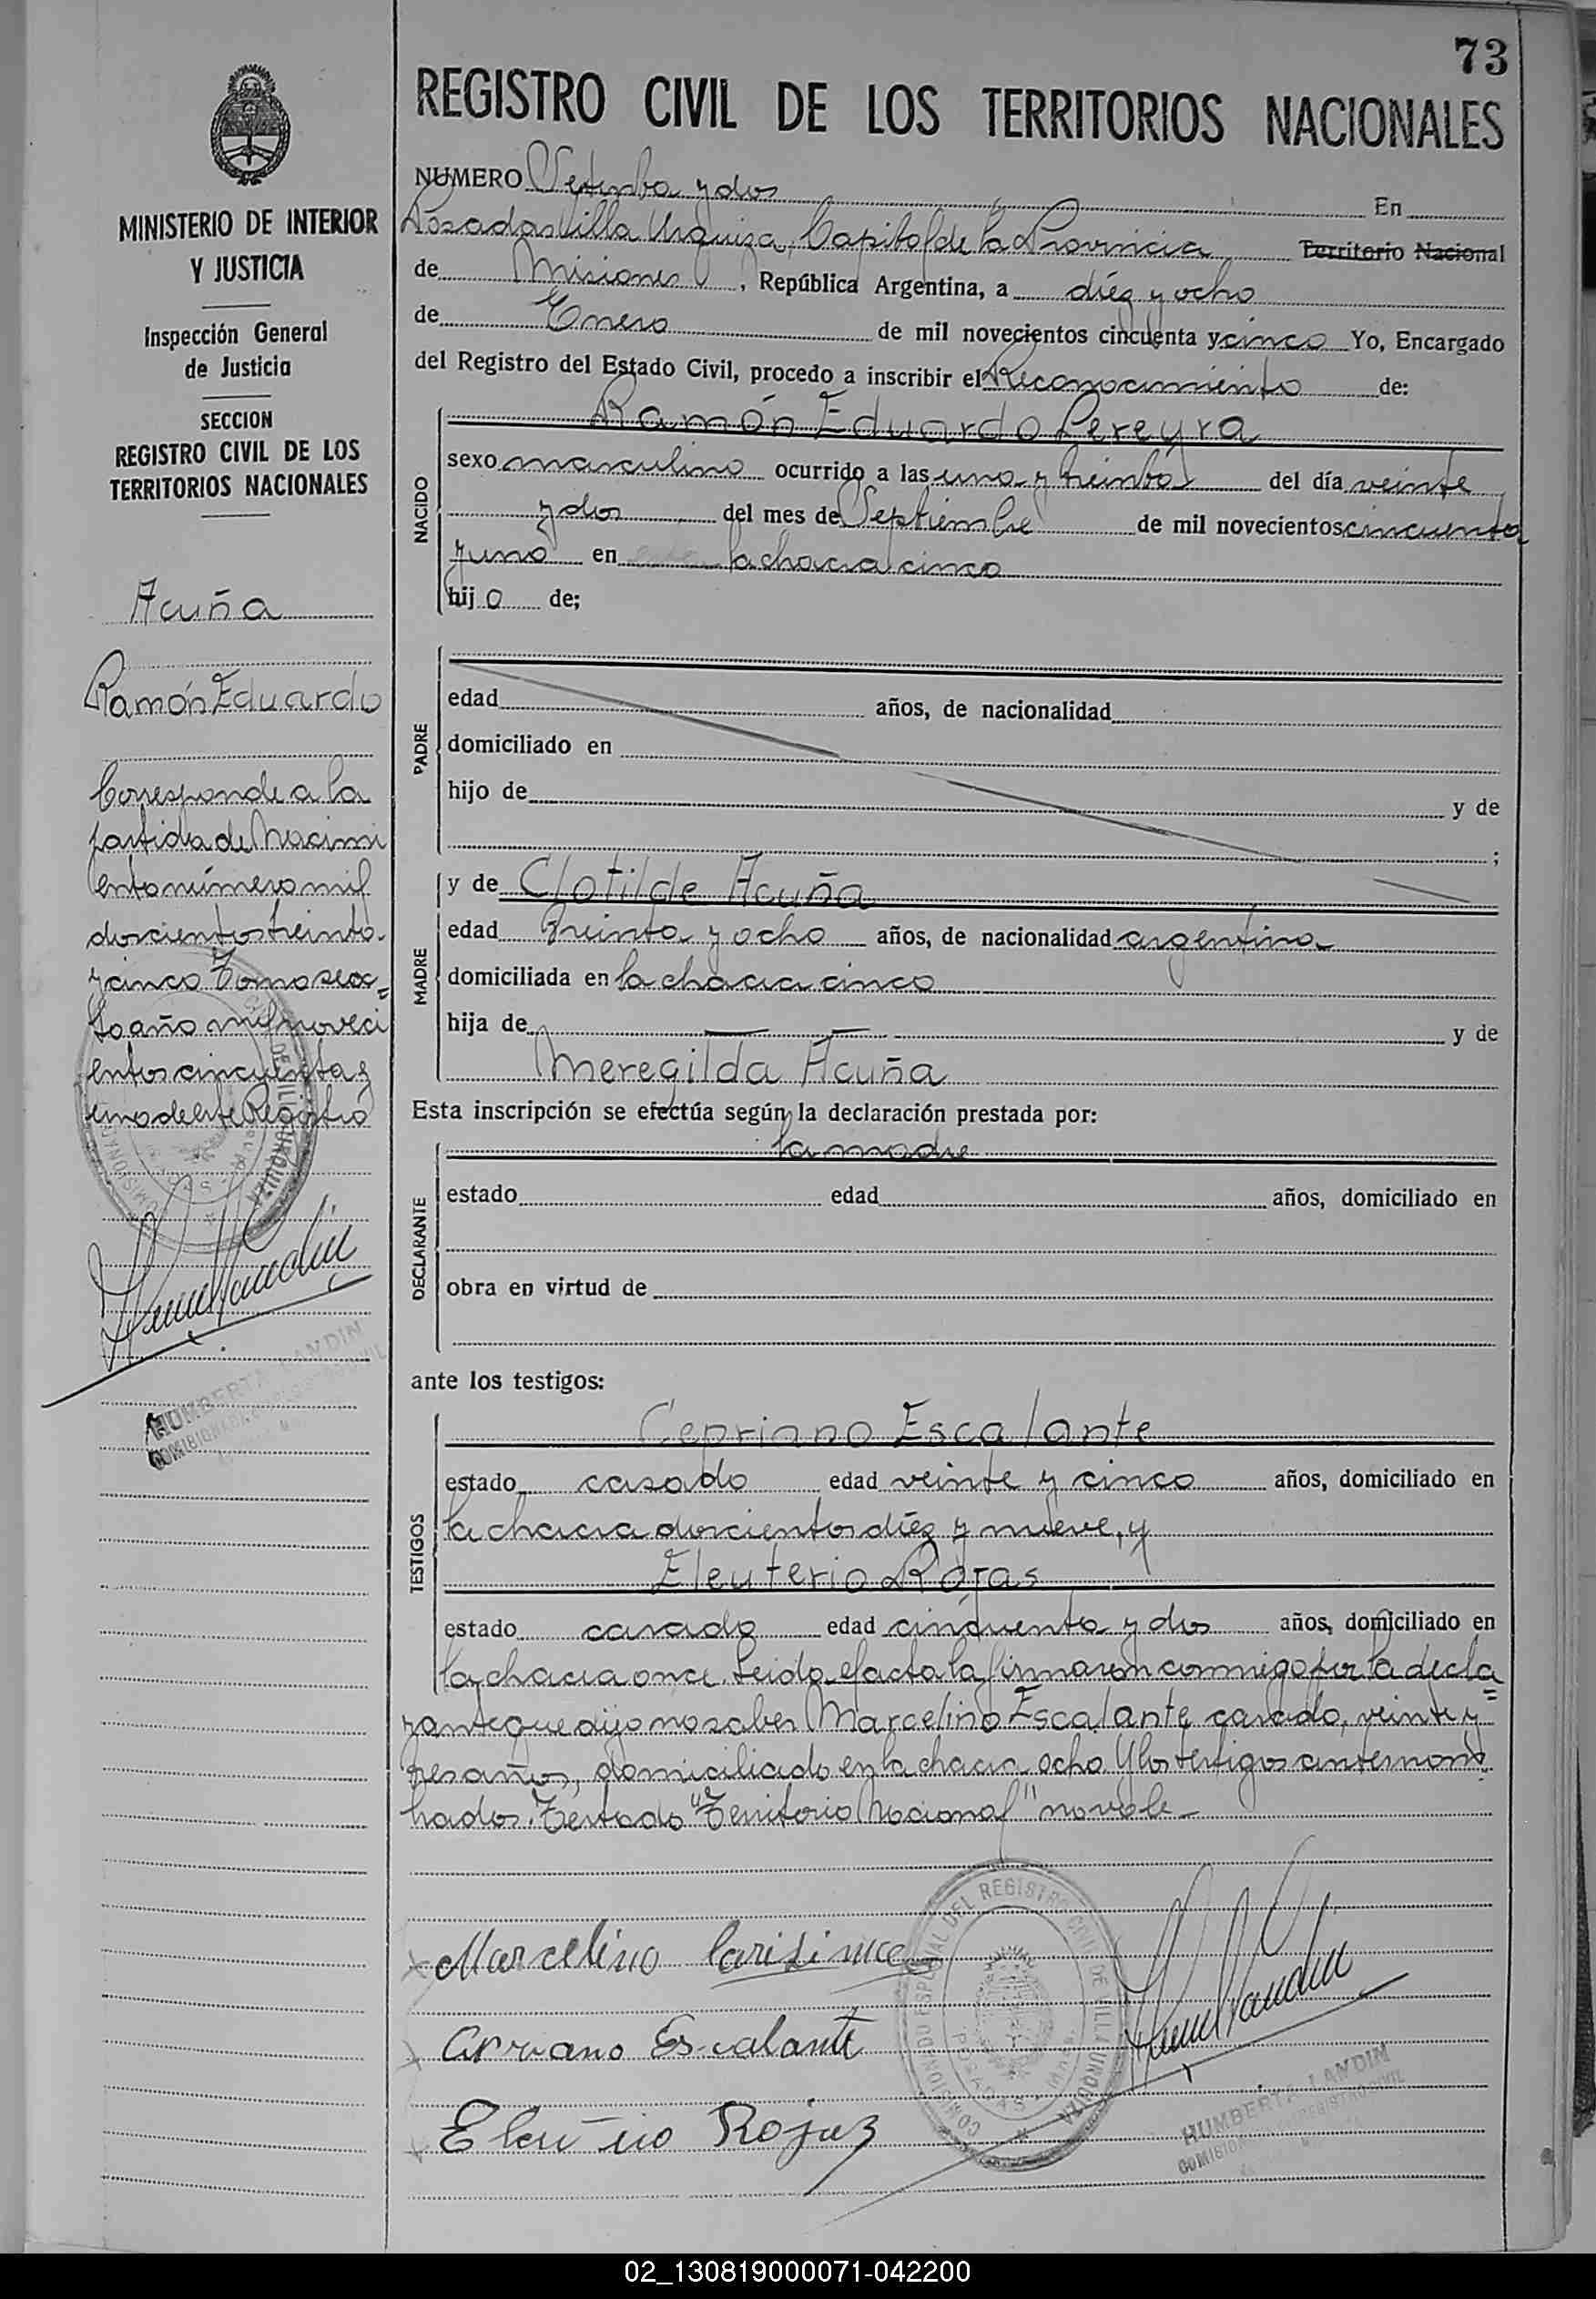 73
REGISTRO CIVIL DE LOS TERRITORIOS NACIONALES
MINISTERIO DE INTERIOR
Y JUSTICIA
Inspección General
de Justicia
SECCION
REGISTRO CIVIL DE LOS
TERRITORIOS NACIONALES
Acuña
Ramón Eduardo
Corresponde a la
partida de Nacimi
ento número mil
doscientos treinta
y cinco Tomo sex=
to año mil noveci
entos cincuenta y
uno de este Registro
HUMBERTA LANDIN
NUMERO Setenta y dos En
Posadas Villa Urquiza, Capital de la Provincia Territorio Nacional
de Misiones, República Argentina, a diéz y ocho
de Enero de mil novecientos cincuenta y cinco Yo, Encargado
del Registro del Estado Civil, procedo a inscribir el Reconocimiento de:
NACIDO
Ramón Eduardo Pereyra
sexo masculino ocurrido a las una y treinta del día veinte
y dos del mes de Septiembre de mil novecientos cincuenta
y uno en la chacra cinco
hijo de;
PADRE
edad años, de nacionalidad
domiciliado en
hijo de y de
;
MADRE
y de Clotilde Acuña
edad treinta y ocho años, de nacionalidad argentina
domiciliada en la chacra cinco
hija de — — y de
Meregilda Acuña
Esta inscripción se efectúa según la declaración prestada por:
DECLARANTE
la madre
estado edad años, domiciliado en
obra en virtud de
ante los testigos:
TESTIGOS
Cepriano Escalante
estado casado edad veinte y cinco años, domiciliado en
la chacra doscientos diéz y nueve, y
Eleuterio Rojas
estado casado edad cincuenta y dos años, domiciliado en
la chacra once. Leida el acta la firmaron conmigo por la decla=
rante que dijo no saber Marcelino Escalante casado, veinte y
tres años, domiciliado en la chacra ocho y los testigos antes nom
brados. Testado "Territorio Nacional" no vale
Marcelino
Cipriano Escalante
Rojas
COMISIONADO ESPECIAL DEL REGISTRO CIVIL DE VILLA URQUIZA
POSADAS
HUMBERTA LANDIN
02_130819000071-042200